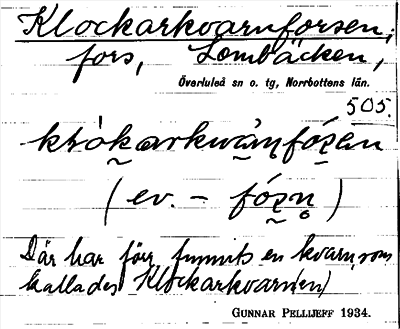 Klockarkvarnforsen,
fors, Lombäcken,
Överluleå sn o. tg, Norrbottens län.
505.
klòkarkwàṇfóṣen
(ev. - fóṣṇ)
Där har förr funnits en kvarn, som
kallades Klockarkvarn(en)
GUNNAR PELLIJEFF 1934.